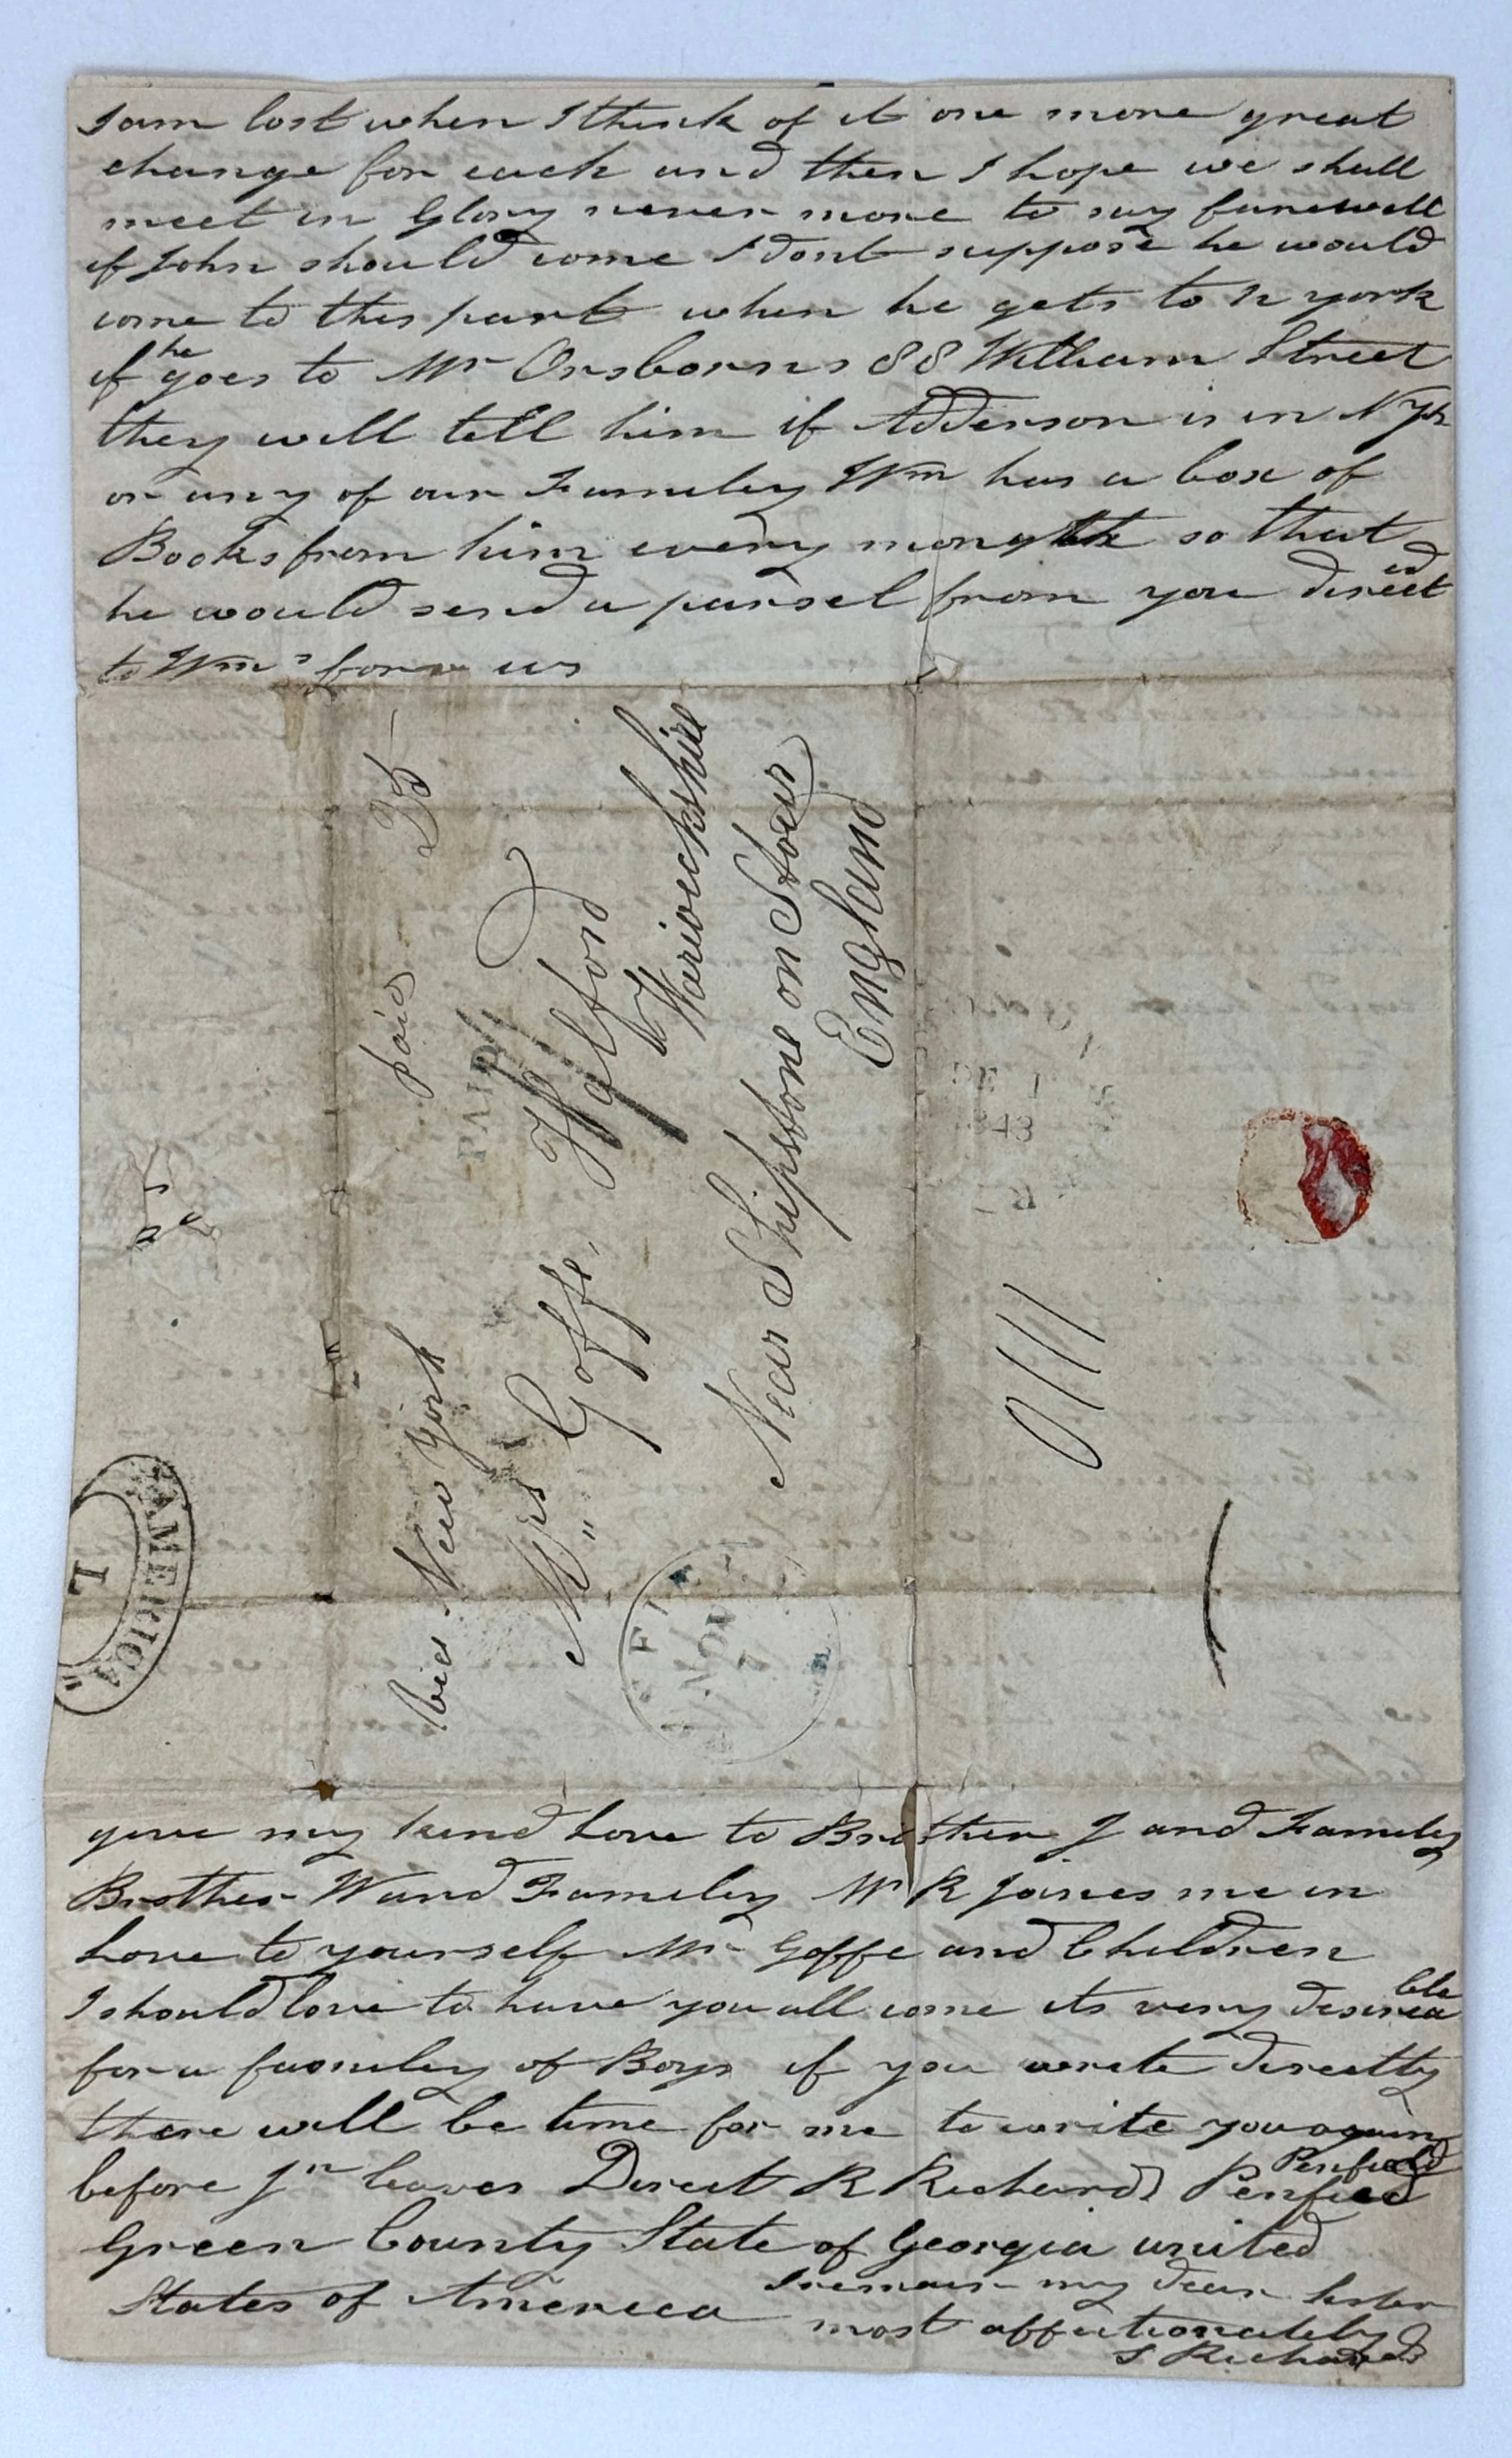 I am lost when I think of it one more great
change for each and then I hope we shall
meet in Glory never more to say farewell
if John should come I dont suppose he would
come to this part when he gets to N york
if he goes to Mr Orsborns 88 William Street
they will tell him if Adderson is in N Yk
or any of our Fameley Wm has a box of
Books from him every month so that
he would send a parsel from you directed
to Wms for us
paid 25
PAID
via New york
Mrs Goffe, Halford
Warwickshire
Near Shipstone on Stour
England
NOV
7
DE 1
43
AMERICA
L
give my kind Love to Brother J and Fameley
Brother W and Fameley Mr R joines me in
Love to yourself Mr Goffe and Children
I should love to have you all come its very desireable
for a fameley of Boys if you write directly
there will be time for me to write you again
before Jn leaves Direct R Richards Penfield
Penfield
Green County State of Georgia united
States of Amereca I remain my dear Sister
most affectionately
S Richards